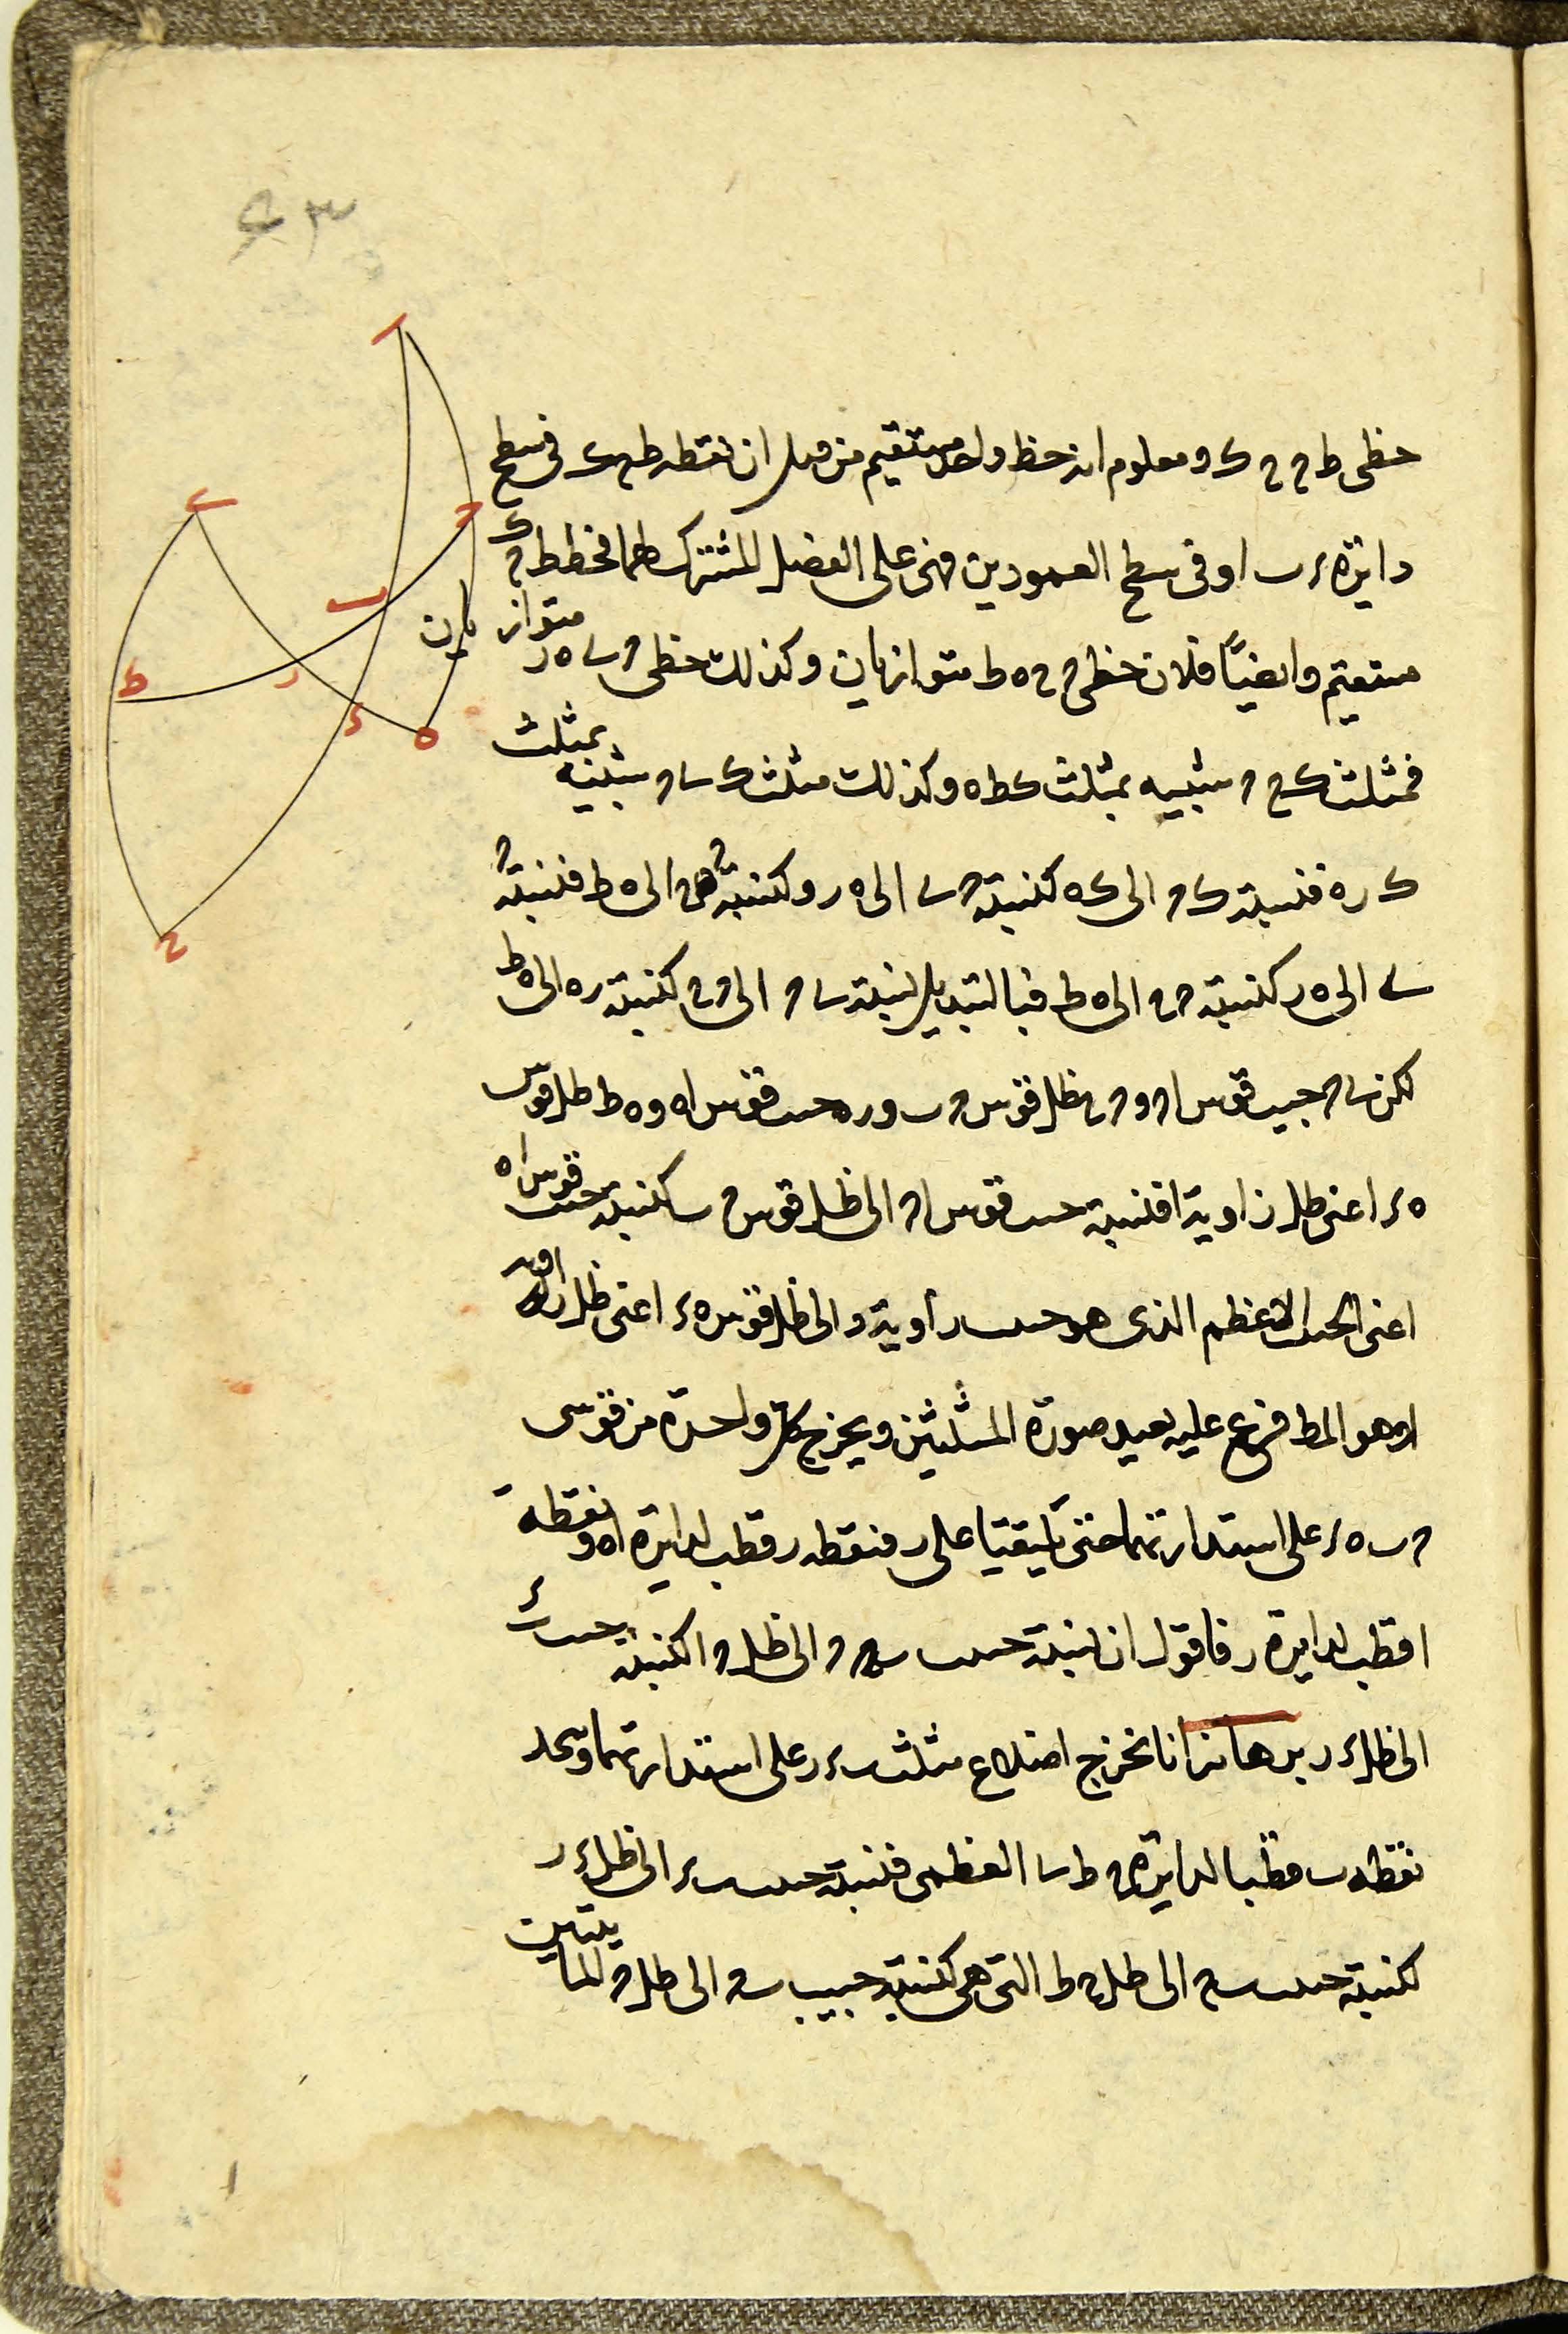 خطى ط ح ح ك ومعلوم انه خط واحد مستقيم من قبل ان نقطه ط ح ك فى سطح
دايرة ء ب ا وفى سطح العمودين فهى على الفصل المشترك لهما فخط ط ح ك
مستقيم وايضًا فلان خطى ح ح ه ط متوازيان وكذلك خطى ح ى ه ر متوازيان
فمثلث ك ح ح شبيه بمثلث ك ط ه وكذلك مثلث ك ى ح شبيه بمثلث
ك ر ه فنسبة ك ح الى ك ه كنسبة ح ى الى ه ر وكنسبة ح ح الى ه ط فنسبة ح
ى الى ه ر كنسبة ح ح الى ه ط فبالتبديل نسبة ى ح الى ح ح كنسبة ر ه الى ه ط
لكن ى ح جيب قوس ا ح و ح ح ظل قوس ح ب و ر ه جيب قوس ا ه و ه ط ظل قوس
ه ء اعنى ظل زاوية ا فنسبة جيب قوس ا ح الى ظل قوس ح ب كنسبة جيب قوس ا ه
اعنى الجيب الاعظم الذى هو جيب زاوية د الى ظل قوس ه ء اعنى ظل زاوية
ا وهو المط فرع عليه نعيد صورة المثلثين ويخرج كل واحدة من قوسى
ح ب ه ء على استدارتهما حتى يلتقيا على ر فنقطه ر قطب لدايرة ا ه ونقطة
ا قطب لدايرة ر فاقول ان نسبة جيب ب ح الى ظل ح ا كنسبة جيب ب ء
الى ظل ء ر برهانه انا نخرج اضلاع مثلث ب ء ر على استدارتهما ونجعل
نقطه ب قطبا لدايرة ح ط ى العظمى فنسبة جيب ب ء الى ظل ء ر
كنسبة جيب ب ح الى ظل ح ط التى هى كنسبة جيب ب ح الى ظل ح ا لمايتين